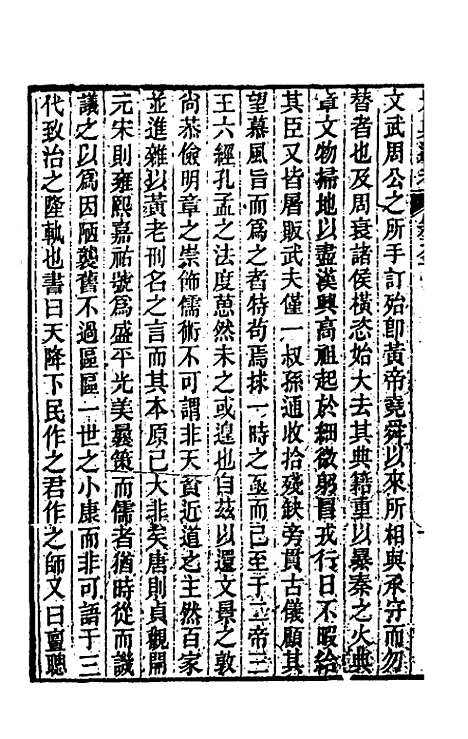 文武周公之所手訂殆即黃帝堯舜以來所相與承守而勿
替者也及周衰諸侯橫恣始大去其典籍重以暴秦之火典
章文物掃地以盡漢興高祖起於細微躬冒戎行日不暇給
其臣又皆屠販武夫僅一叔孫通收拾殘缺旁貫古儀顧其
望慕風旨而為之者特苟焉捄一時之亟而已至于二帝三
王六經孔孟之法度蔥然未之或遑也自茲以還文景之敦
尚恭儉明章之崇飾儒術不可謂非天資近道之主然百家
並進雜以黃老刑名之言而其本原已大非矣唐則貞觀開
元宋則雍熙嘉祐號為盛平光美曩策而儒者猶時從而譏
議之以為因陋襲舊不過區區一世之小康而非可語于三
代致治之隆軌也書曰天降下民作之君作之師又曰亶聰